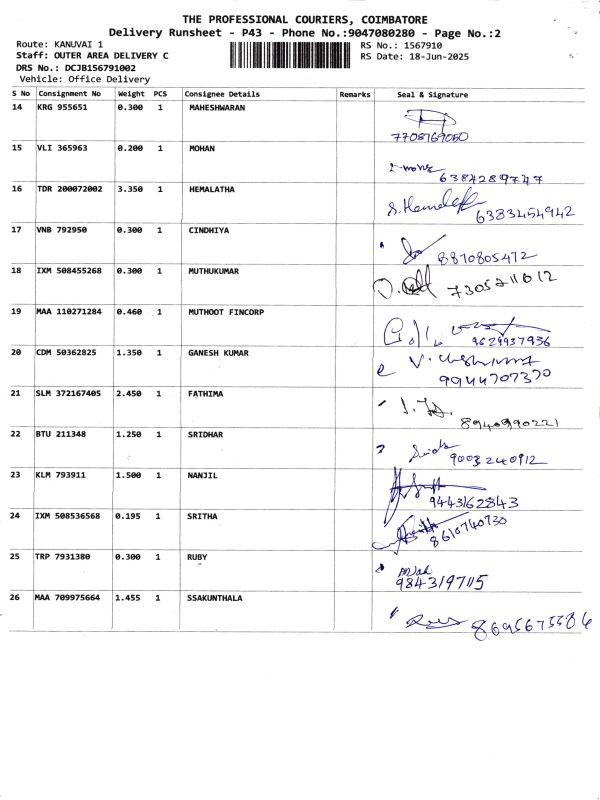 THE PROFESSIONAL COURIERS, COIMBATORE
Delivery Runsheet - P43 - Phone No.:9047080280 - Page No.:2
Route: KANUVAI 1 RS No.: 1567910
Staff: OUTER AREA DELIVERY C RS Date: 18-Jun-2025
DRS No.: DCJB156791002
Vehicle: Office Delivery
S No Consignment No Weight PCS Consignee Details Remarks Seal & Signature
14 KRG 955651 0.300 1 MAHESHWARAN
7708769050
15 VLI 365963 0.200 1 MOHAN
6384289747
16 TDR 200072002 3.350 1 HEMALATHA
6383454942
17 VNB 792950 0.300 1 CINDHIYA
8870805472
18 IXM 508455268 0.300 1 MUTHUKUMAR
19 MAA 110271284 0.460 1 MUTHOOT FINCORP
9629937936
20 CDM 50362825 1.350 1 GANESH KUMAR
9944707370
21 SLM 372167405 2.450 1 FATHIMA
8940990221
22 BTU 211348 1.250 1 SRIDHAR
9003240912
23 KLM 793911 1.500 1 NANJIL
9443162843
24 IXM 508536568 0.195 1 SRITHA
8610740730
25 TRP 7931380 0.300 1 RUBY
9843197115
26 MAA 709975664 1.455 1 SSAKUNTHALA